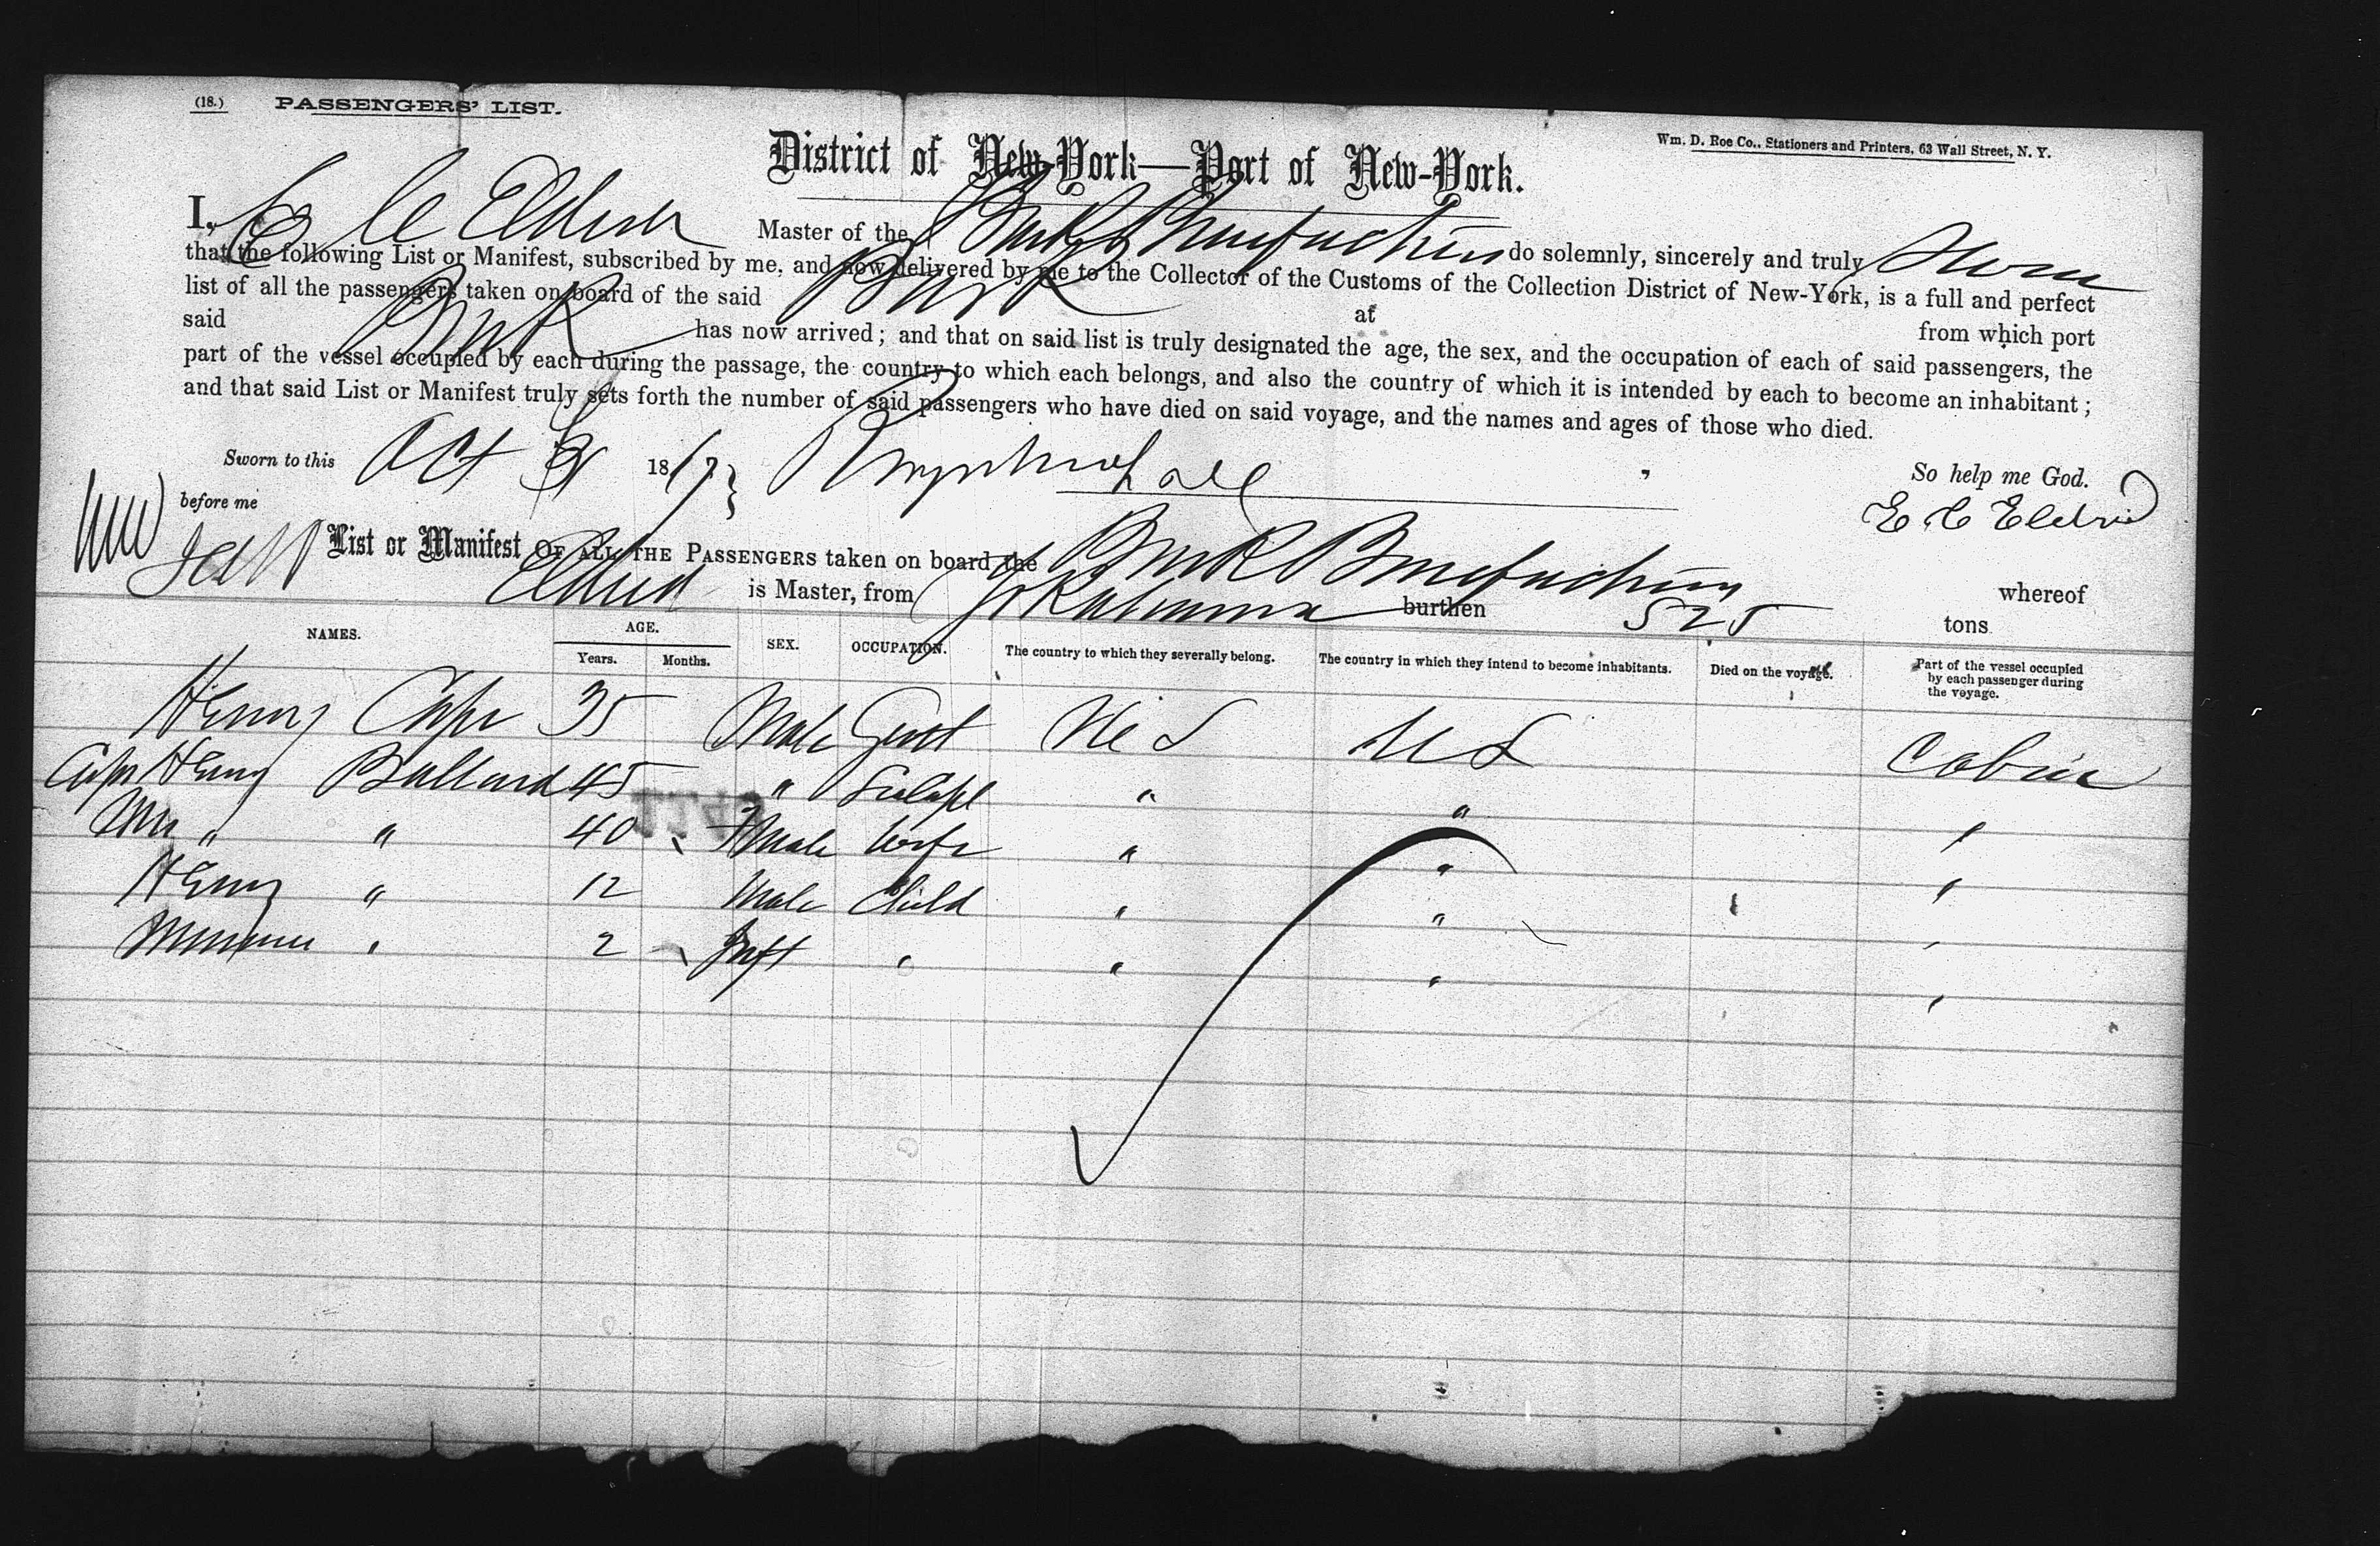 (18.) PASSENGERS' LIST.
Wm. D. Roe Co., Stationers and Printers, 63 Wall Street, N. Y.
District of New-York—Port of New-York.
I, E C Eldred Master of the Bark do solemnly, sincerely and truly Swear
that the following List or Manifest, subscribed by me, and now delivered by me to the Collector of the Customs of the Collection District of New-York, is a full and perfect
list of all the passengers taken on board of the said Bark at from which port
said Bark has now arrived; and that on said list is truly designated the age, the sex, and the occupation of each of said passengers, the
part of the vessel occupied by each during the passage, the country to which each belongs, and also the country of which it is intended by each to become an inhabitant;
and that said List or Manifest truly sets forth the number of said passengers who have died on said voyage, and the names and ages of those who died.
Sworn to this Oct 18 So help me God.
before me E C Eldred
List or Manifest OF ALL THE PASSENGERS taken on board the Bark whereof
Eldred is Master, from Yokahama burthen 525 tons
NAMES. AGE. Years. Months. SEX. OCCUPATION. The country to which they severally belong. The country in which they intend to become inhabitants. Died on the voyage. Part of the vessel occupied by each passenger during the voyage.
Henry 35 Male Gent U S U S Cabin
Capt Henry Bullard 45 " " " "
Mrs " " 40 Fmale Wife " " "
Henry " 12 Male Child " " "
" 2 Inft " " " "